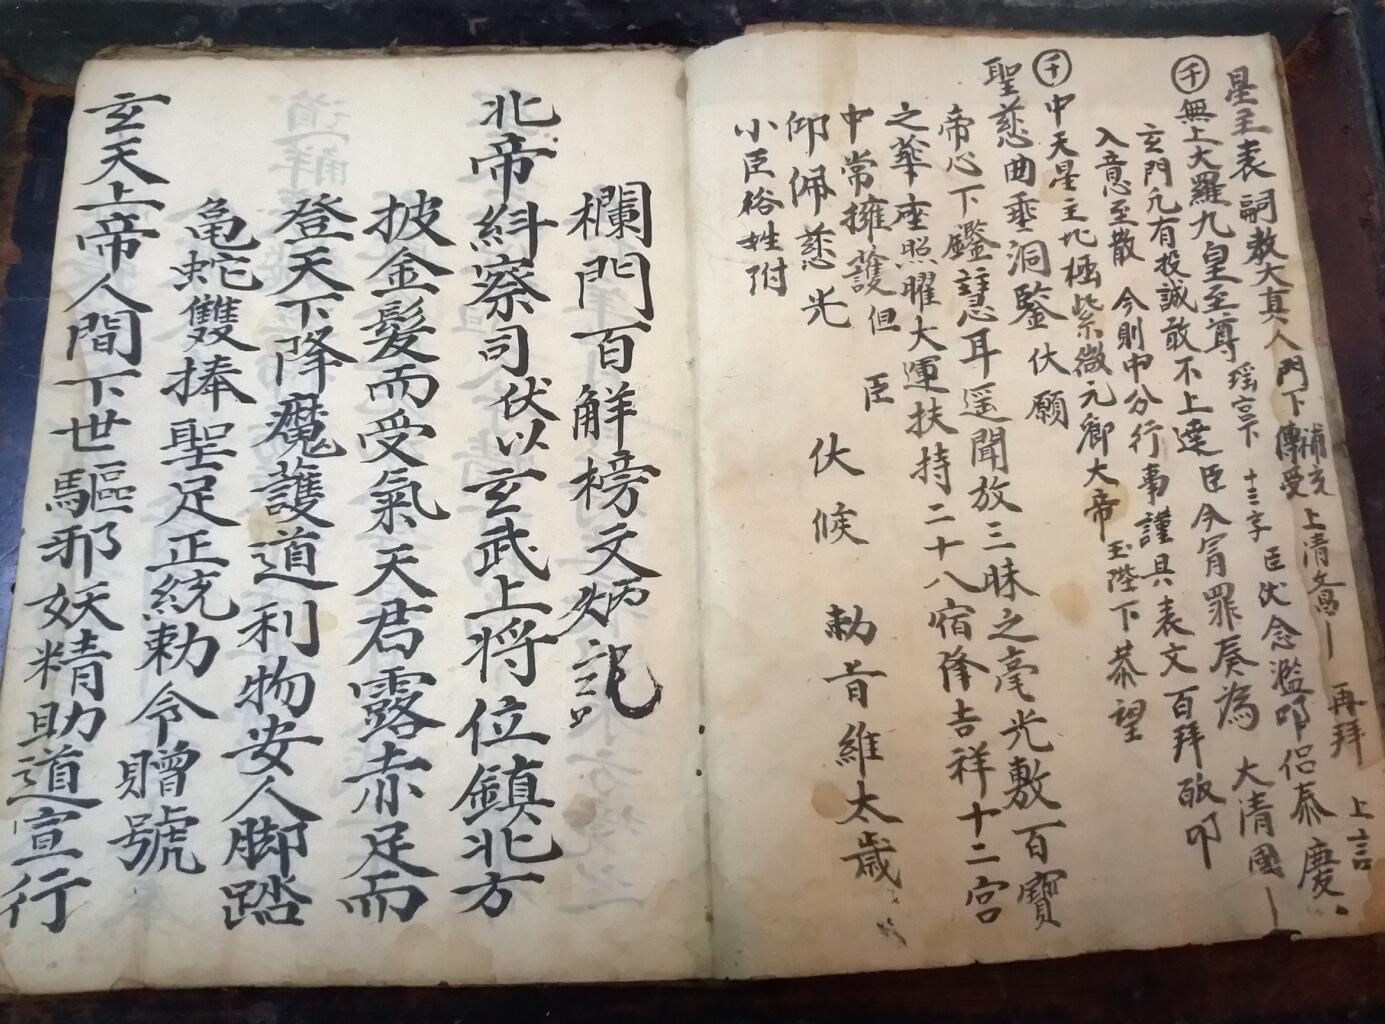 星主表 嗣教大真人 門下 補充傳受 上清文昌 再拜 上言
㊉無上大羅九皇至尊 瑤宮下 十三字 臣伏念濫叨侣忝慶
玄門凢有投誠敢不上達 臣今冐罪奏為 大清國
入意至散 今則申分行事謹具表文百拜 啟叩
中天星主北極紫微元卿大帝 玉陛下 恭望
聖慈曲垂洞鑒 伏願
帝心下鑑慧耳遥聞放三昧之毫光敷百寶
之華座照曜大運扶持二十八宿降吉祥十二宫
中常擁護但 臣
仰佩慈光 伏候 勅旨維太歲
小臣裕姓附
欄門百解榜文炳記
北帝糾察司 伏以玄武上将位鎮北方
披金髮而受氣天君露赤足而
登天下降魔護道利物安人脚踏
亀蛇雙捧聖足正統勅令贈號
玄天上帝人間下世驅邪妖精助道宣行